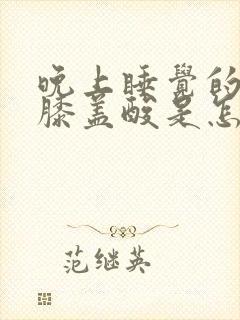 晚上睡覺的
膝盖酸是怎
范继英